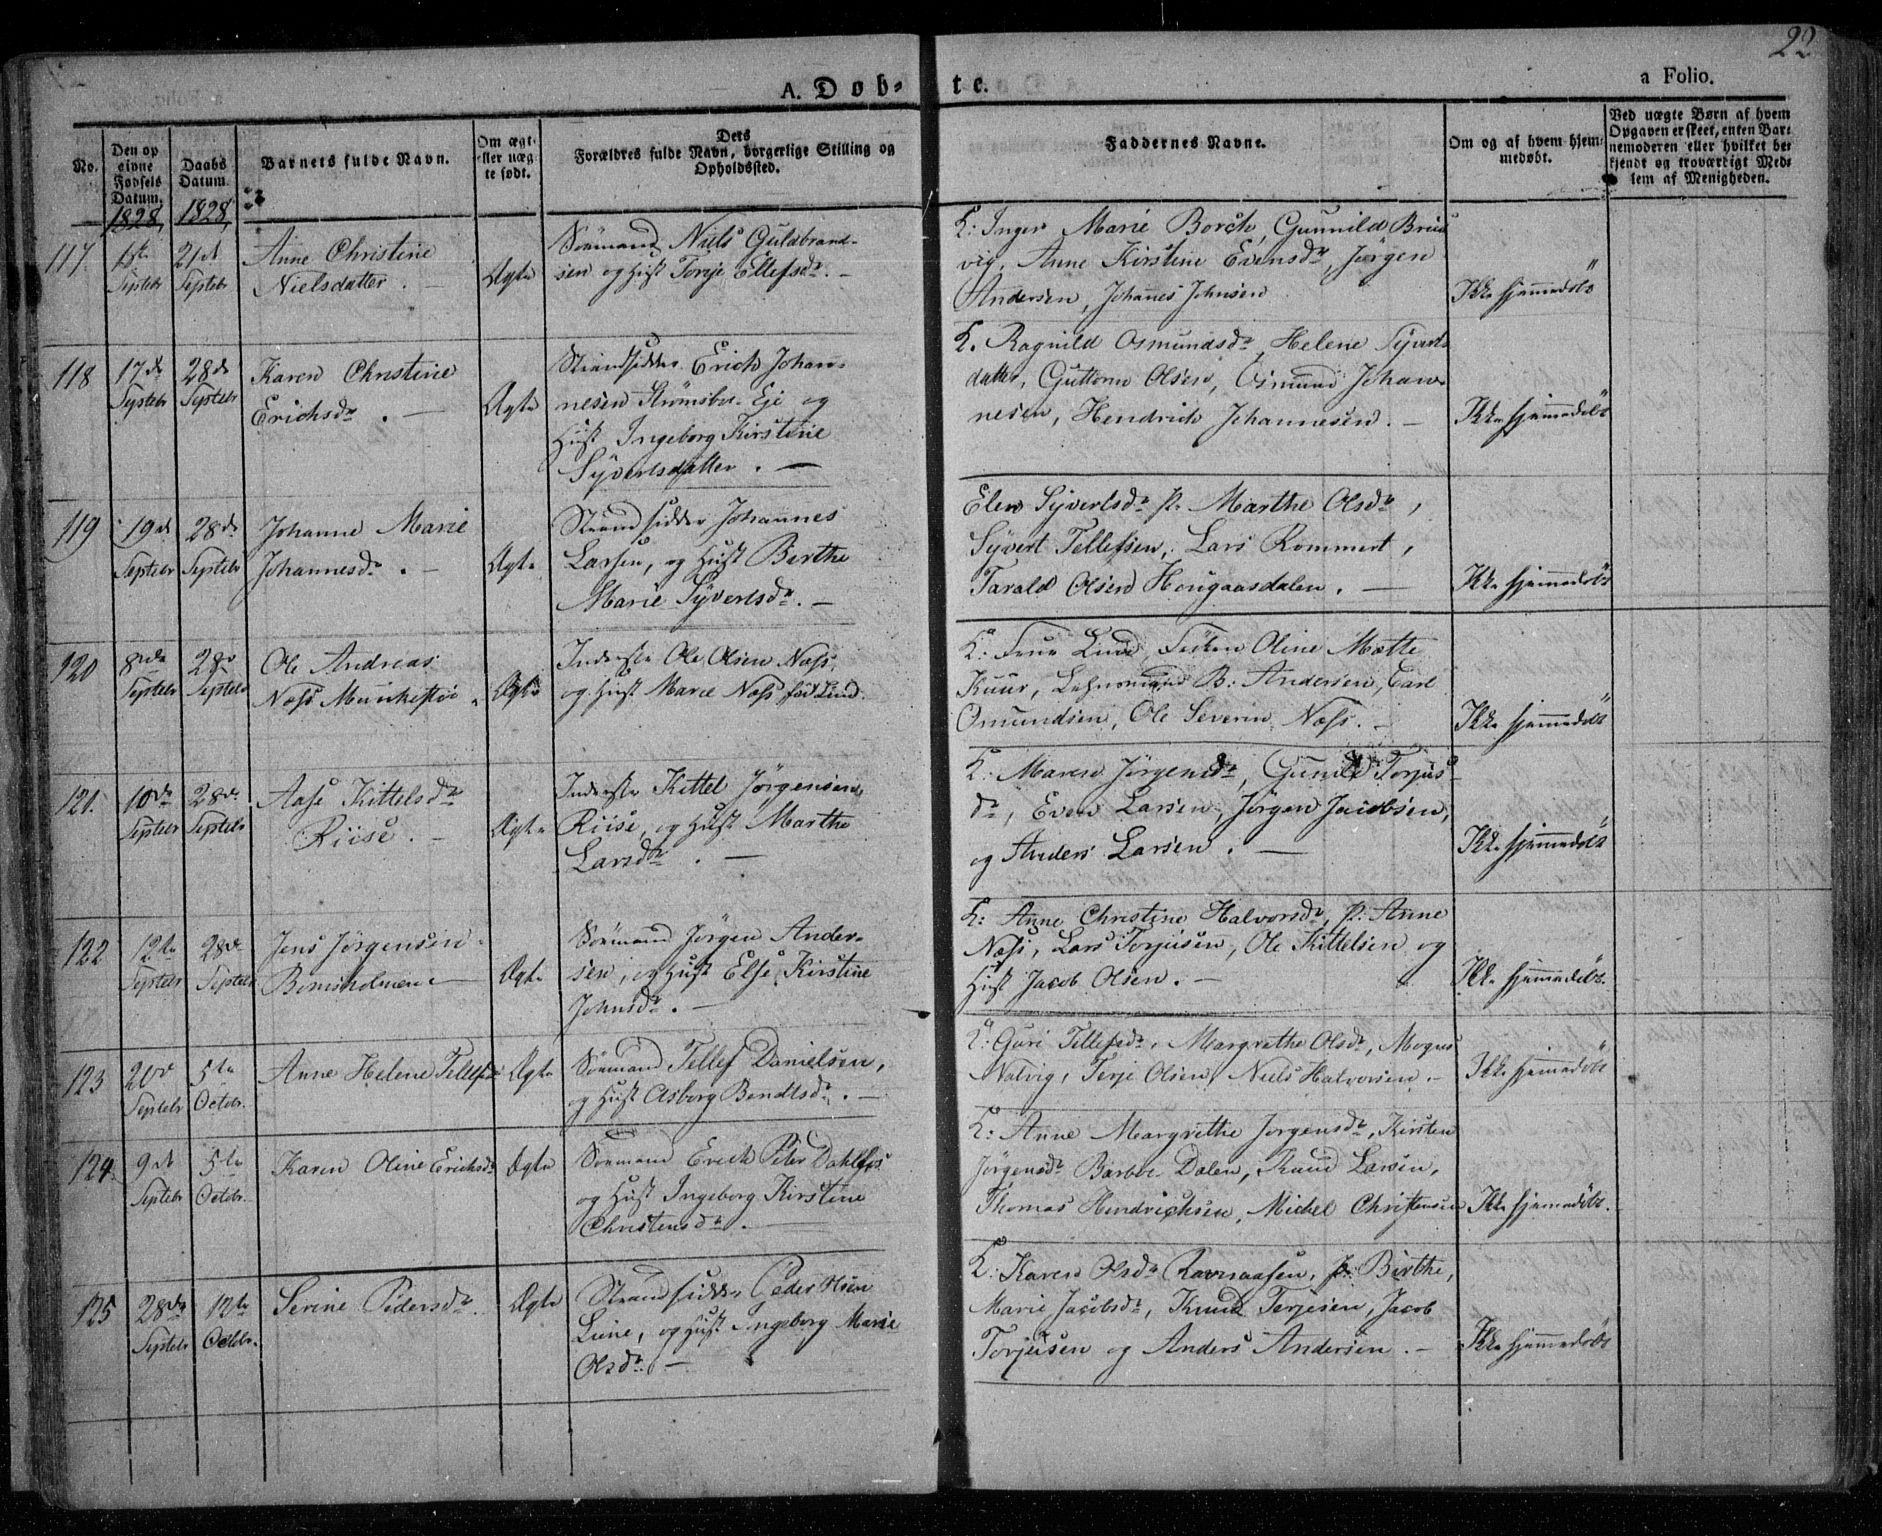 22
A. Døb-te.
a Folio.
No.
Den op
givne
Fødsels
Datum.
1828
Daabs
Datum
1828
Barnets fulde Navn.
Om ægt-
eller uæg-
te født.
Dets
Forældres fulde Navn, borgerlige Stilling og
Opholdssted.
Faddernes Navne.
Om og af hvem hjem-
medøbt.
Ved uægte Børn af hvem
Opgaven er skeet, enten Bar-
nemoderen eller hvilket be-
kjendt og troværdigt Med-
lem af Menigheden.
117
Septebr
21de
Septebr
Anne Christine
Nielsdatter.
Ægte
Sømand Niels Guldbrand-
sen og Hust Torje Ellefsdr.
K: Inger Marie Borch, Gunnild
vig, Anne Kirstine Evensdr, Jørgen
Andersen, Johannes Johnsen
Ikke hjemmedøbt
118
17de
Septebr
28de
Septebr
Karen Christine
Erichsdr.
Ægte
Strandsidder Erich Johan-
nesen Strømsboe Eje og
Hust Ingeborg Kirstine
Syvertsdatter.
K. Ragnild Osmundsdr, Helene Syverts
datter, Guttorm Olsen, Osmund Johan-
nesen, Hendrich Johannesen.
Ikke hjemmedøbt
119
19de
Septebr
28de
Septebr
Johanne Marie
Johannesdr.
Ægte
Strandsidder Johannes
Larsen, og Hust Berthe
Marie Syvertsdr.
Elen Syvertsdr p. Marthe Olsdr,
Syvert Tellefsen, Lars Rommert,
Tarald Olsen Hougaasdalen.
Ikke hjemmedøbt
120
8de
Septebr
28de
Septebr
Ole Andreas
Næss
Ægte
Inderste Ole Olsen Næss,
og Hust Maree Næss fød Lind.
K: Frue Lund, Frøken Oline Mette
Kuur, Lehnsmand B: Andersen, Carl
Omundsen, Ole Severin Næss.
Ikke hjemmedøbt
121.
10de
Septebr
28de
Septebr
Aase Kittelsdr
Riise.
Ægte
Inderste Kittel Jørgensen
Riise, og Hust Marthe
Larsdr.
K: Maren Jørgensdr, Gunild Torjus-
dr, Even Larsen, Jørgen Jacobsen,
og Anders Larsen.
Ikke hjemmedøbt
122
12te
Septebr
28de
Septebr
Jens Jørgensen
Bomsholmen
Ægte
Sømand Jørgen Ander-
sen, og Hust Else Kirstine
Johnsdr.
K: Anne Christine Halvorsdr, p: Anne
Næss, Lars Torjusen, Ole Kittelsen og
Hust Jacob Olsen.
Ikke hjemmedøbt.
123
20de
Septebr
5te
Octobr.
Anne Helene Tellefsdr
Ægte
Sømand Tellef Danielsen,
og Hust Asborg Bendtsdr.
K: Guri Tellefsdr, Margrethe Olsdr, Mogens
Natvig, Terje Olsen, Niels Halvorsen.
Ikke hjemmedøbt
124.
9de
Septebr
5te
Octobr.
Karen Oline Erichsdr
Ægte
Sømand Erich Peter Dahlfos
og Hust Ingeborg Kirstine
Christensdr.
K: Anne Margrethe Jørgensdr, Kirsten
Jørgensdr Barboe Dalen, Knud Larsen,
Thomas Hendrichsen, Michel Christensen
Ikke hjemmedøbt.
125
28de
Septebr
12te
Octobr.
Serine Pedersdr.
Ægte
Strandsidder Peder Olsen
Lune, og Hust Ingeborg Marie
Olsdr.
K: Karen Olsdr Ravnaasen, p: Birthe,
Marie Jacobsdr, Knud Terjesen, Jacob
Torjusen og Anders Andersen.
Ikke hjemmedøbt